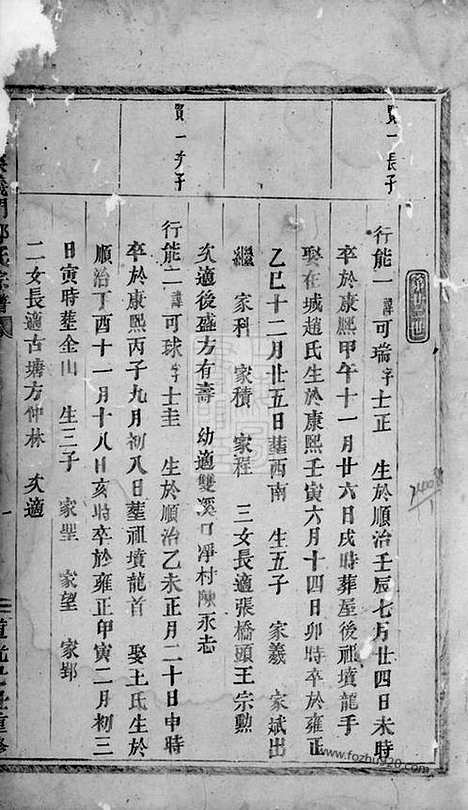 賢一長子
行能一諱可瑞字士正 生於順治壬辰七月廿四日未時
卒於康熙甲午十一月廿六日戌時葬屋後祖墳龍手
娶在城趙氏生於康熙壬寅六月十四日卯時卒於雍正
乙巳十二月廿五日塟西南 生五子 家羲 家斌出
繼 家科 家積 家程 三女長適張橋頭王宗勲
次適後盛方有壽 幼適雙溪口凈村陳永志
賢一子
行能二諱可球字士圭 生於順治乙未正月二十日申時
卒於康熙丙子九月初八日塟祖墳龍首 娶王氏生於
順治丁酉十一月十八日亥時卒於雍正甲寅二月初三
日寅時塟金山 生三子 家聖 家望 家鄴
二女長適古塘方仲林 次適
義門 氏宗譜
一
www.fozhu920.com